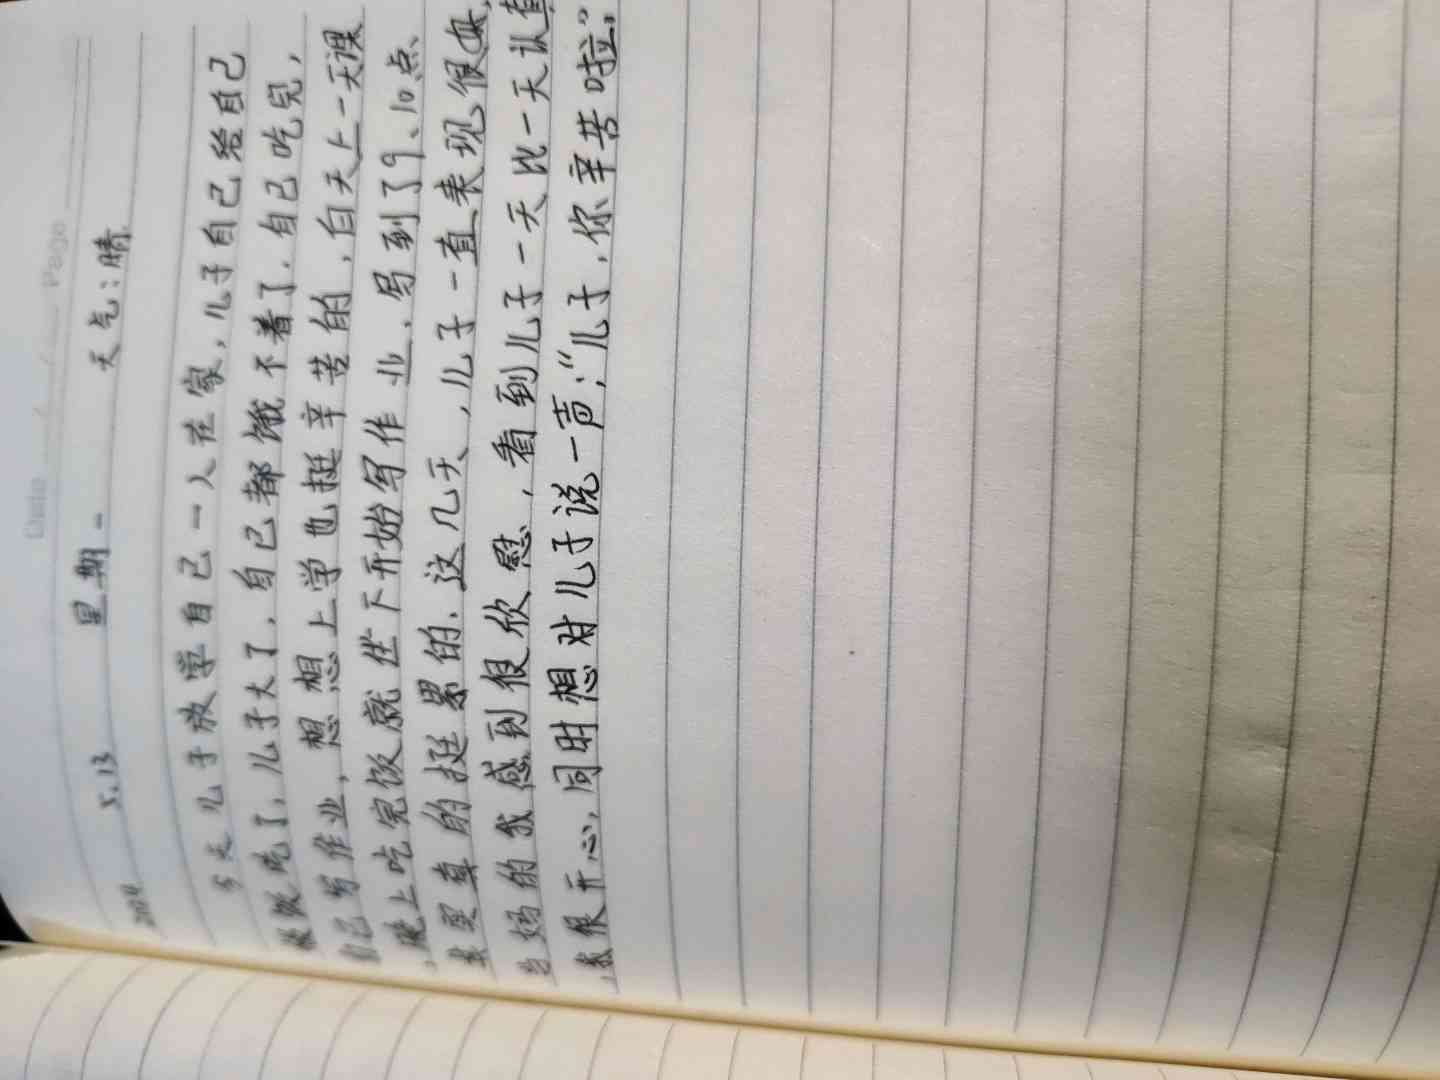 Date / / Page
2024 5.13 星期一 天气:晴
今天儿子放学自己一人在家,儿子自己给自己
做饭吃了,儿子大了,自己都饿不着了.自己吃完,
自己写作业,想想上学也挺辛苦的,白天上一天课
,晚上吃完饭就坐下开始写作业,写到了9、10点、
其实真的挺累的.这几天,儿子一直表现很好,
当妈的我感到很欣慰,看到儿子一天比一天认真
,我很开心,同时想对儿子说一声:“儿子,你辛苦啦”.